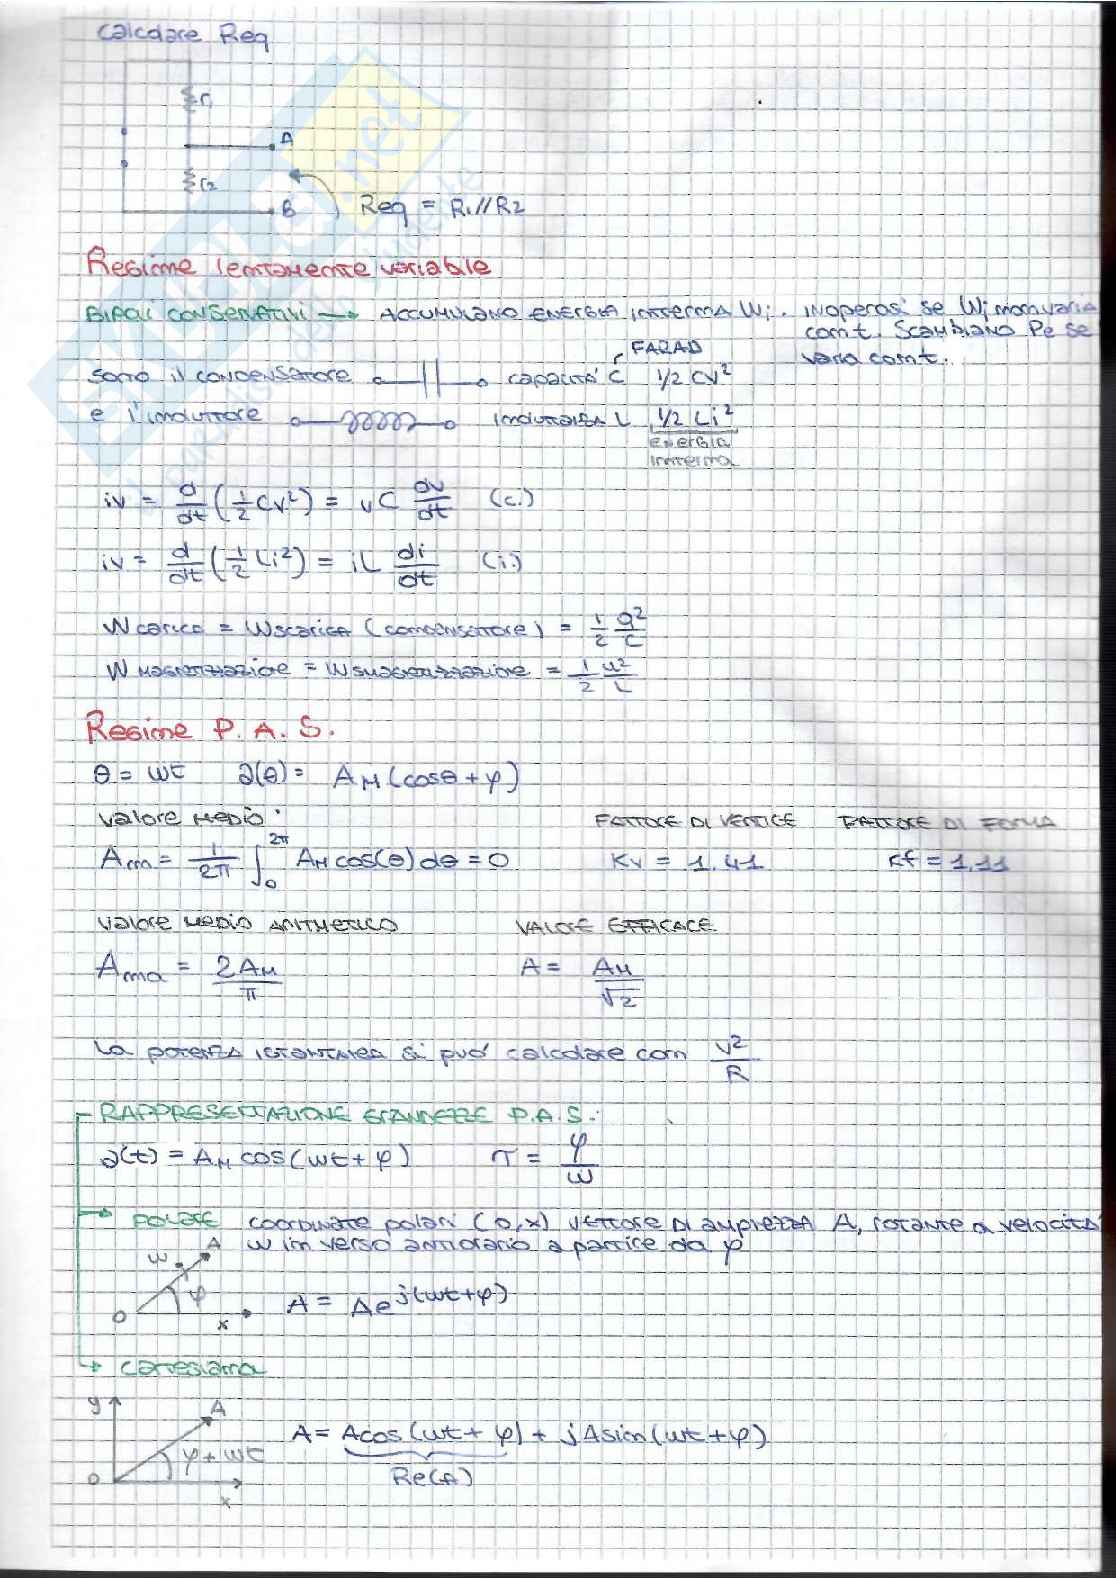 Calcolare Req
r1
A
r2
B
Req = R1//R2
Regime lentamente variabile
BIPOLI CONSERVATIVI → ACCUMULANO ENERGIA INTERNA Wi. INOPEROSI se Wi non varia
con t. Scambiano Pe se
varia con t.
FARAD
sono il condensatore capacità C 1/2 Cv²
e l'induttore INDUTTANZA L 1/2 Li²
energia
interna
iv = d/dt (1/2 Cv²) = vC dv/dt (c.)
iv = d/dt (1/2 Li²) = iL di/dt (i.)
W carica = W scarica (condensatore) = 1/2 q²/C
W magnetizzazione = W smagnetizzazione = 1/2 u²/L
Regime P.A.S.
θ = ωt a(θ) = AM (cosθ + φ)
valore medio:
FATTORE DI VERTICE FATTORE DI FORMA
Am = 1/2π ∫₀^2π AM cos(θ) dθ = 0 Kv = 1.41 Kf = 1.11
valore medio aritmetico VALORE EFFICACE
Ama = 2AM/π A = AM/√2
La potenza istantanea si può calcolare con v²/R
RAPPRESENTAZIONE GRANDEZZE P.A.S.:
a(t) = AM cos(ωt + φ) τ = φ/ω
→ POLARE coordinate polari (O,x) vettore di ampiezza A, rotante a velocità
ω in verso antiorario a partire da φ
ω A
φ
O x
A = Ae^j(ωt+φ)
→ cartesiana
y A
φ + ωt
O x
A = Acos(ωt + φ) + jAsin(ωt + φ)
Re(A)